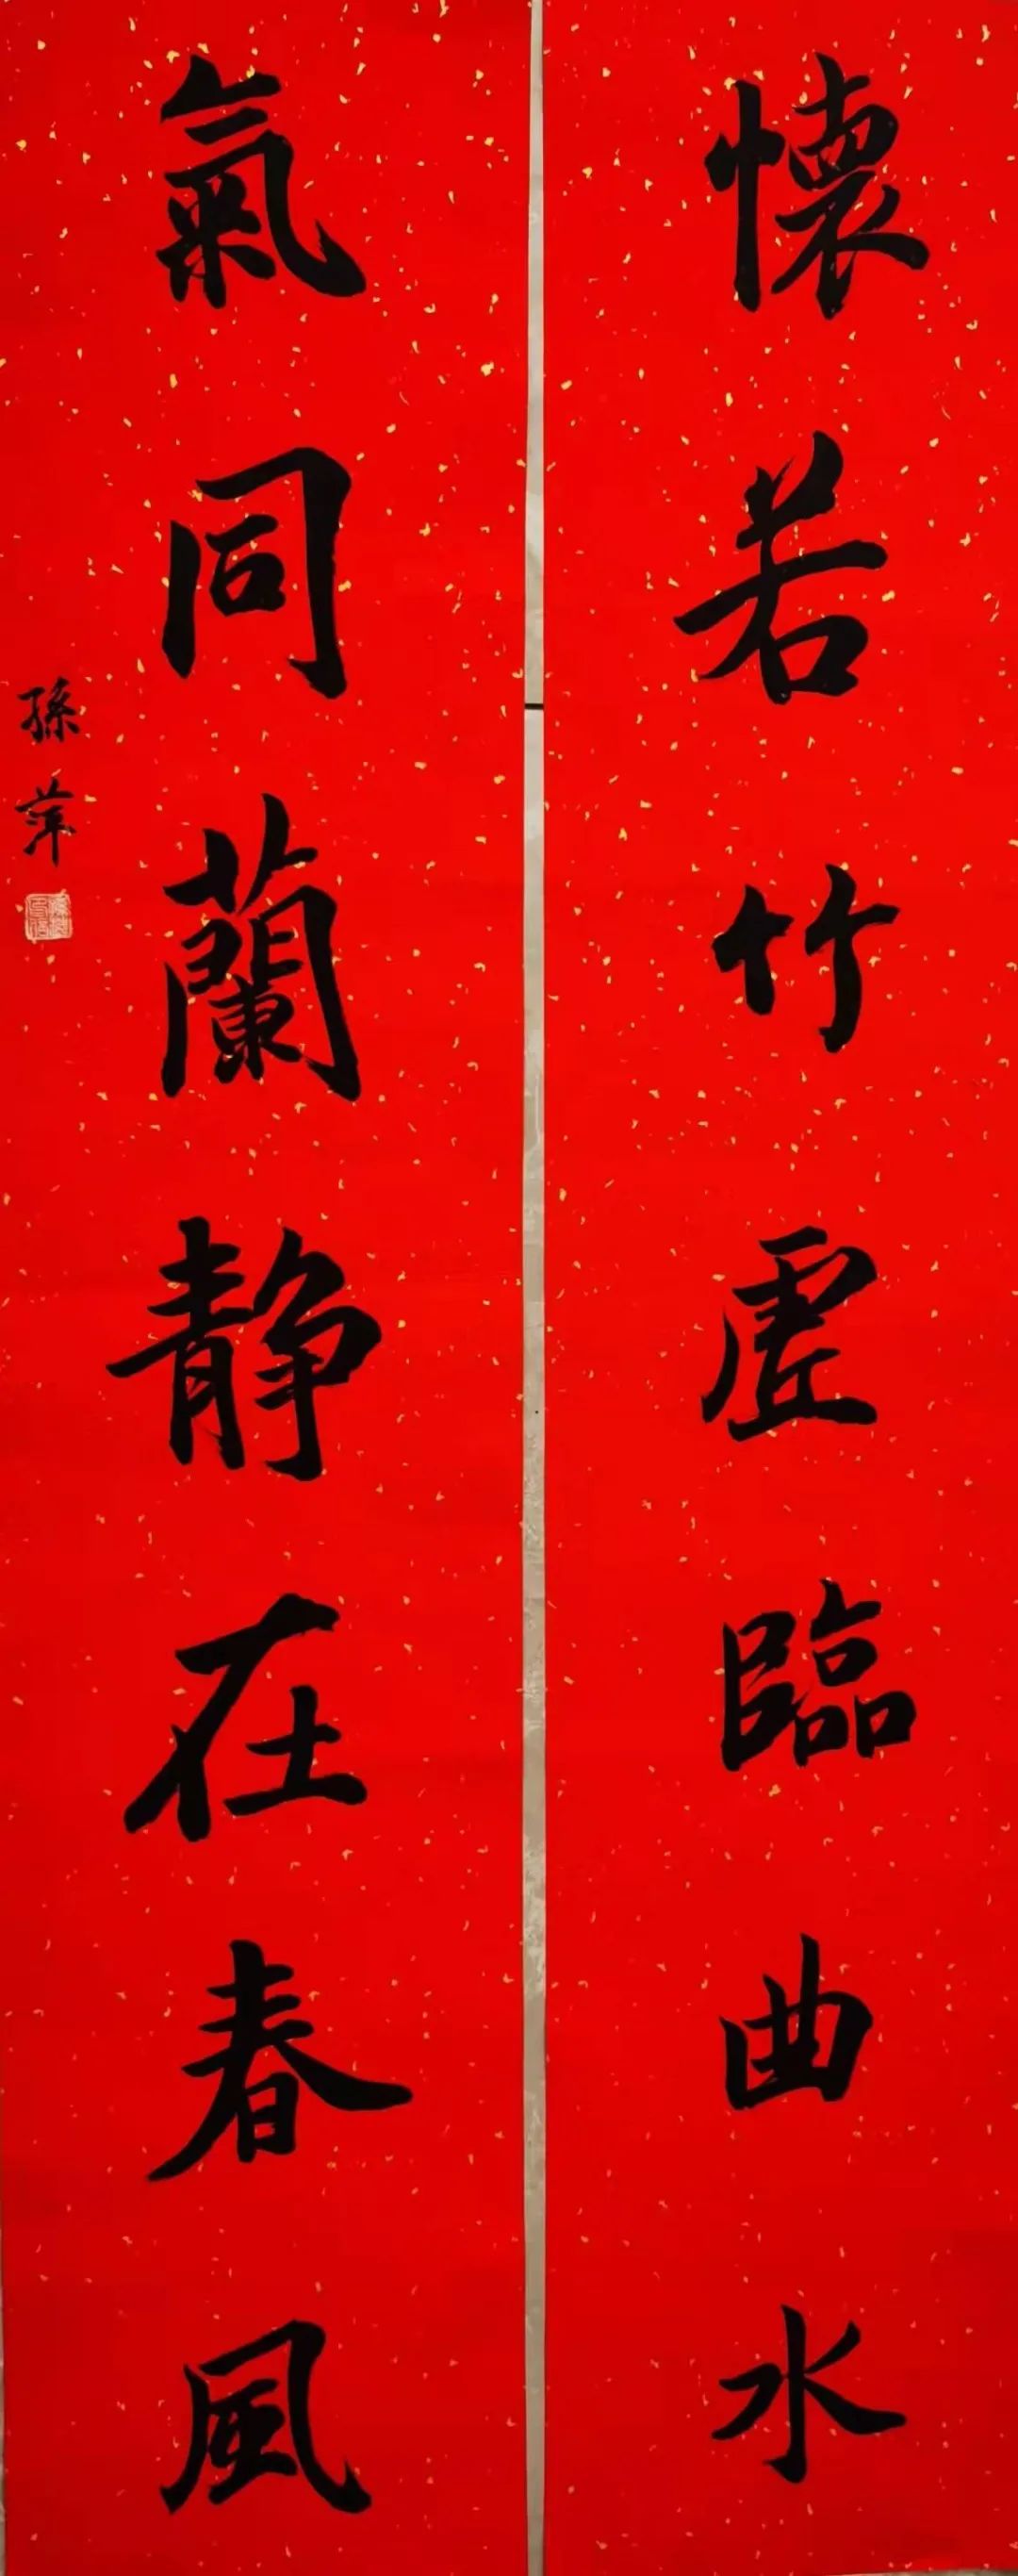 懷若竹虛臨曲水
氣同蘭静在春風
孫萍